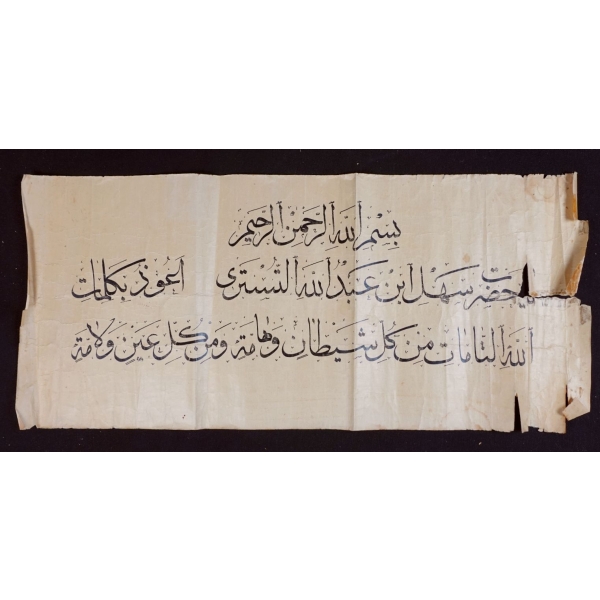 بسم الله الرحمن الرحيم
حضرت سهل ابن عبد الله التسترى اعوذ بكلمات
الله التامات من كل شيطان وهامة ومن كل عين ولامة